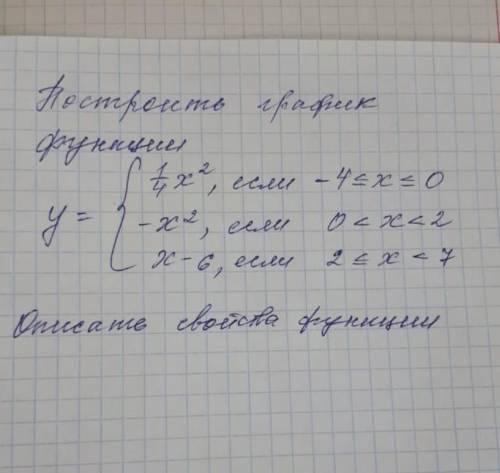 Построить график
функции
y = { 1/4 x², если -4 ≤ x ≤ 0
-x², если 0 < x < 2
x - 6, если 2 ≤ x < 7
Описать свойства функции